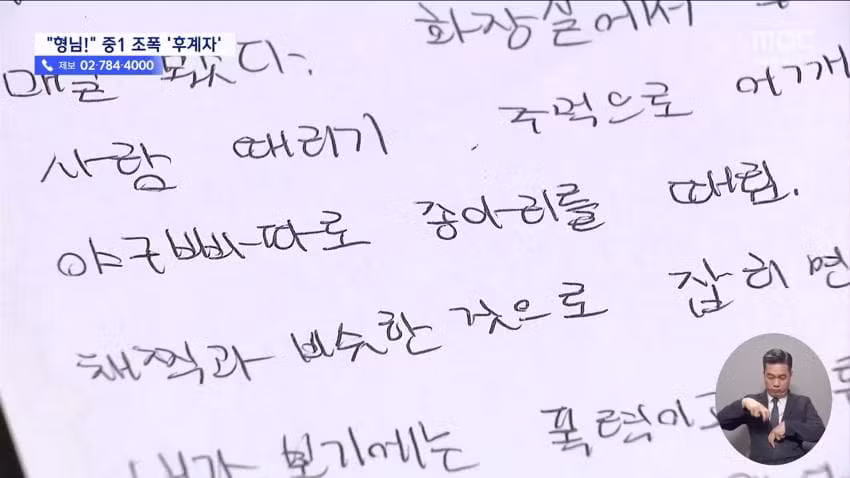 "형님!" 중1 조폭 '후계자'
제보 02-784-4000
MBC
화장실에서
매를 맞았다.
사람 때리기 . 주먹으로 어깨
야구빠따로 종아리를 때림.
채찍과 비슷한 것으로 잡히면
내가 보기에는 폭력이고